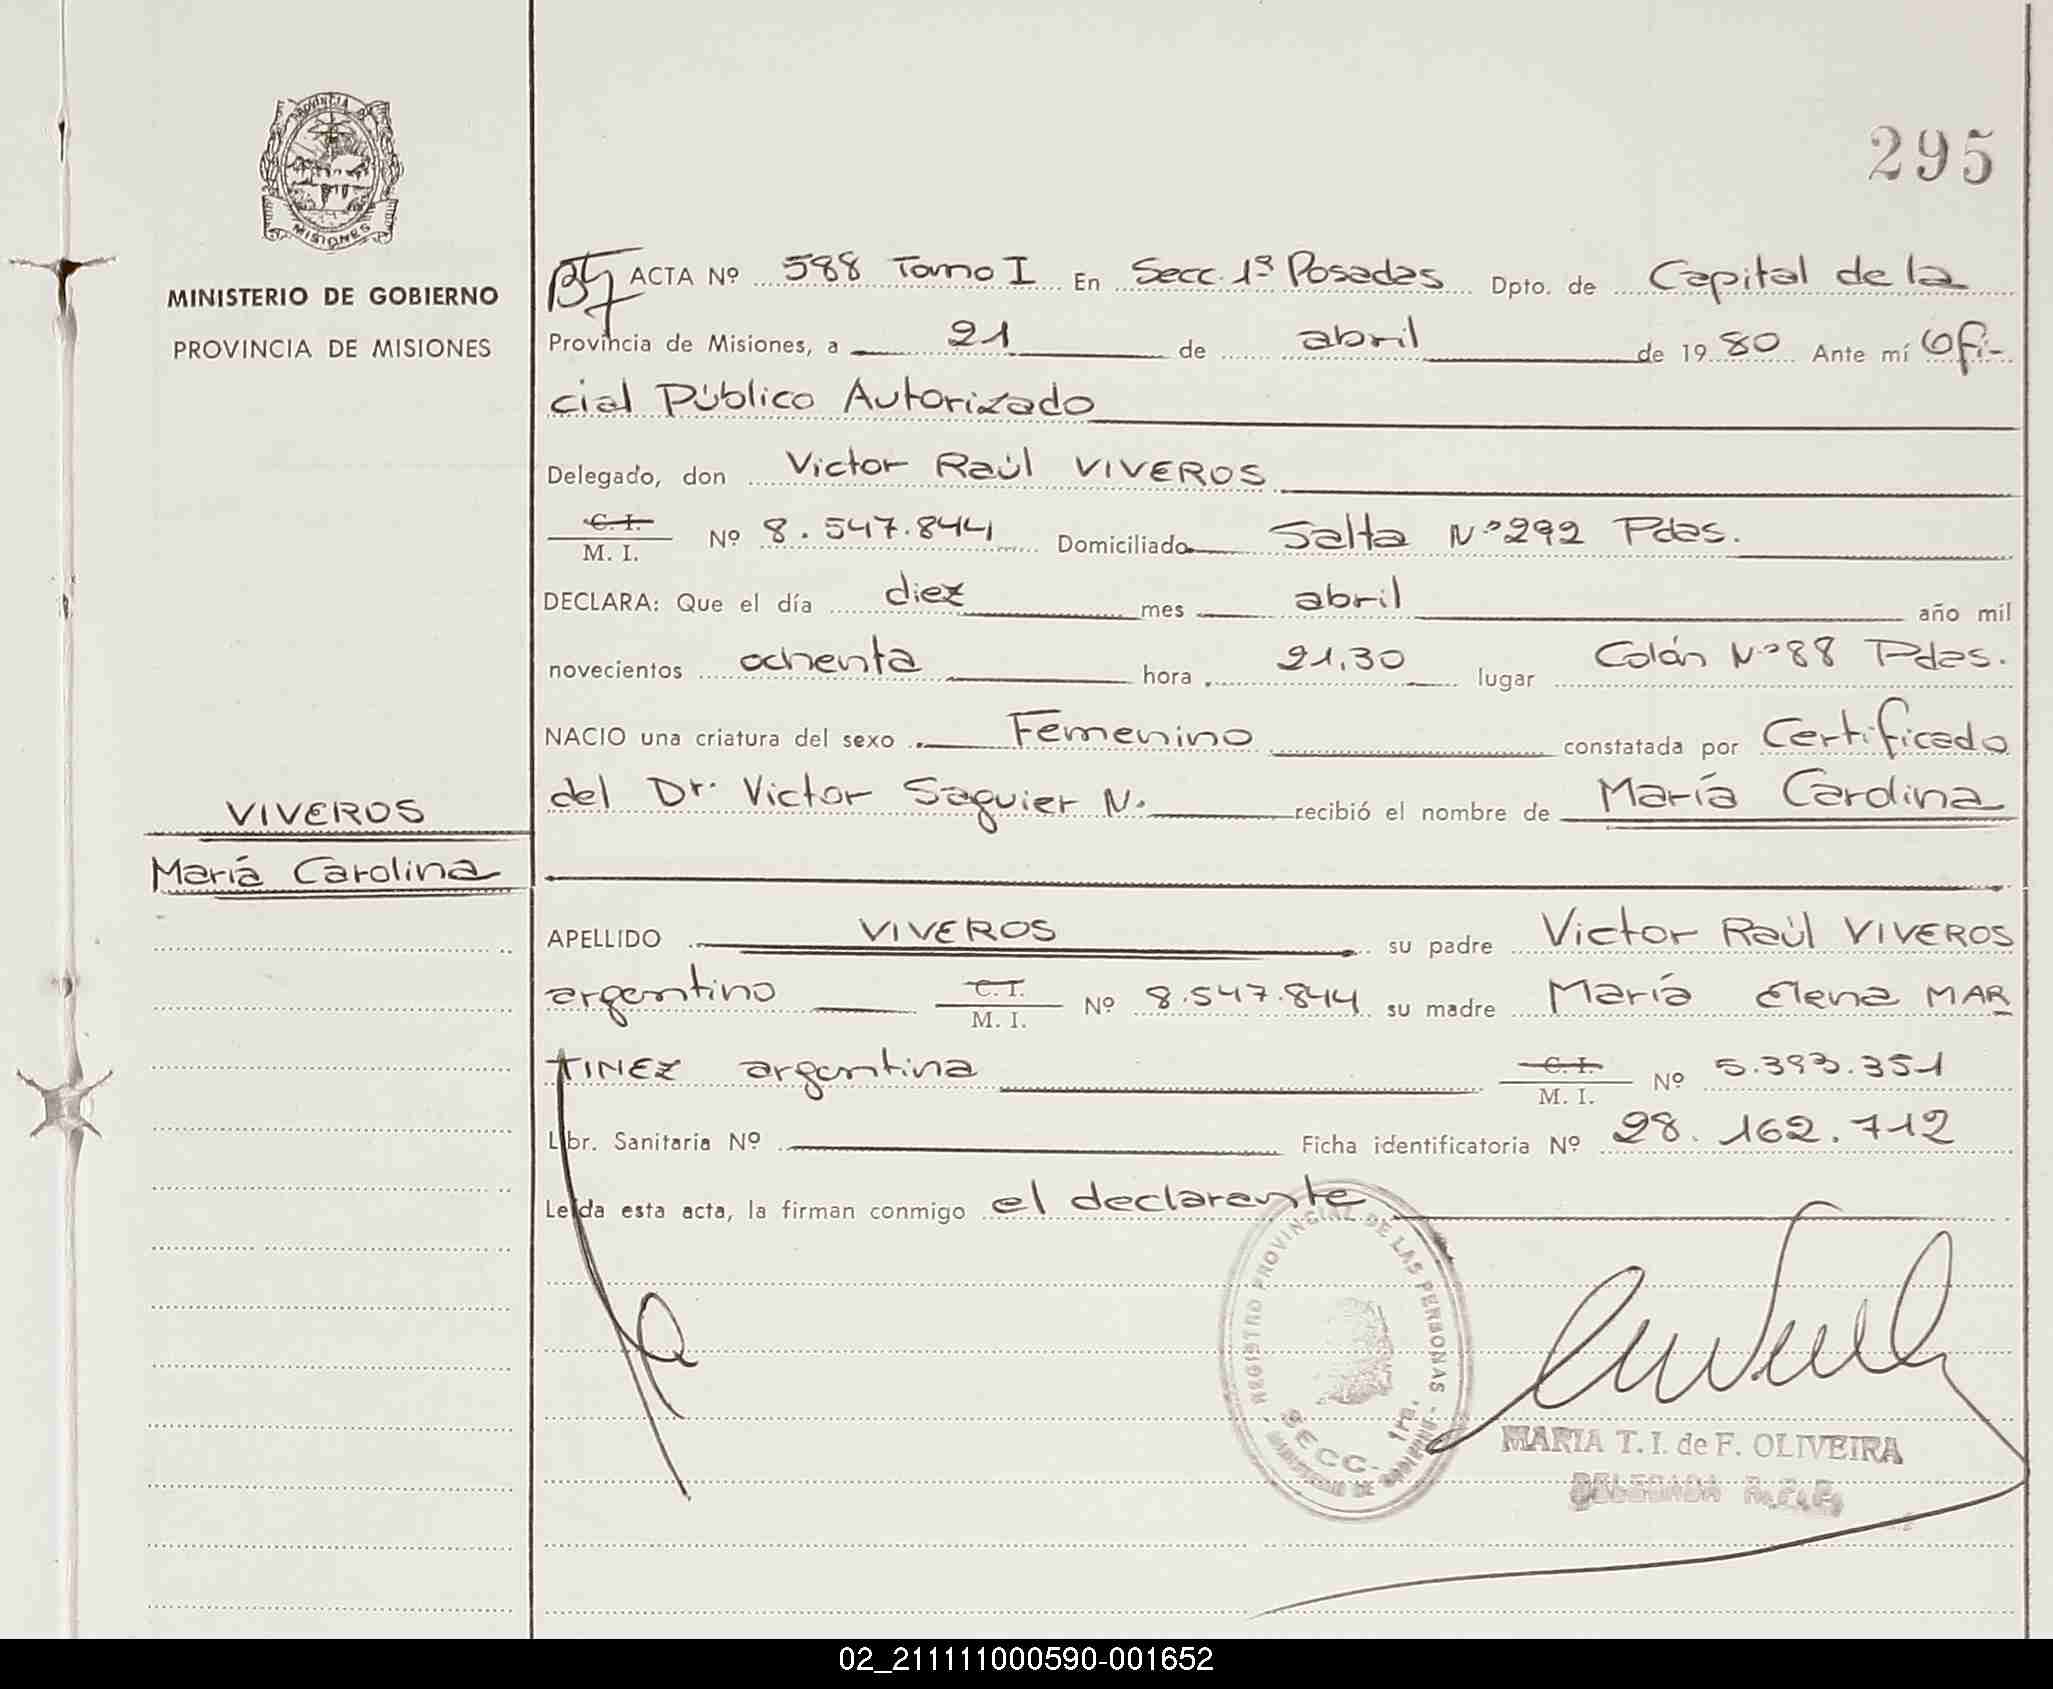 PROVINCIA DE
MISIONES
MINISTERIO DE GOBIERNO
PROVINCIA DE MISIONES
295
ACTA Nº 588 Tomo I En Secc. 1ª Posadas Dpto. de Capital de la
Provincia de Misiones, a 21 de abril de 1980 Ante mí Ofi-
cial Público Autorizado
Delegado, don Victor Raúl VIVEROS
C. I.
M. I. Nº 8.547.844 Domiciliado Salta Nº 292 Pdas.
DECLARA: Que el día diez mes abril año mil
novecientos ochenta hora 21,30 lugar Colón Nº 88 Pdas.
NACIO una criatura del sexo Femenino constatada por Certificado
del Dr. Victor Saguier N. recibió el nombre de María Carolina
VIVEROS
María Carolina
APELLIDO VIVEROS su padre Victor Raúl VIVEROS
argentino C. I.
M. I. Nº 8.547.844 su madre María Elena MAR
TINEZ argentina C. I.
M. I. Nº 5.393.351
Libr. Sanitaria Nº Ficha identificatoria Nº 28.162.712
Leída esta acta, la firman conmigo el declarante
REGISTRO PROVINCIAL DE LAS PERSONAS
SECC. 1ra.
MINISTERIO DE GOBIERNO
MARIA T. I. de F. OLIVEIRA
DELEGADA R.P.P.
02_211111000590-001652